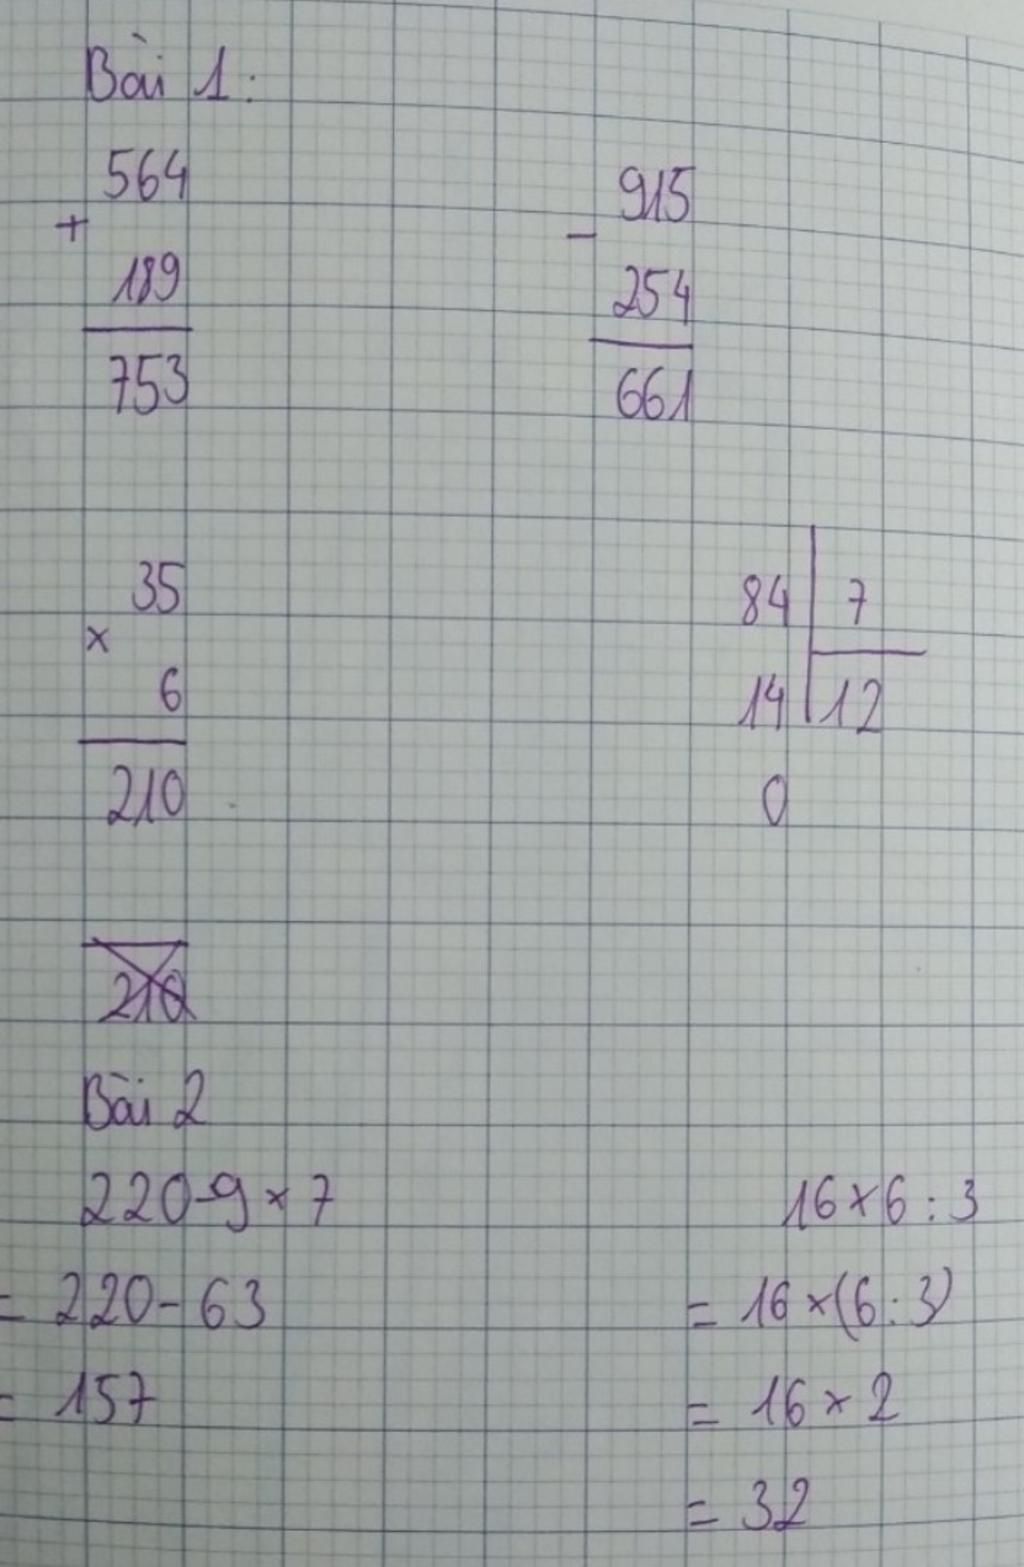 Bài 1:
564
+
189
753
915
-
254
661
35
×
6
210
84 | 7
14 | 12
0
210
Bài 2
220-9×7
= 220-63
= 157
16×6:3
= 16×(6:3)
= 16×2
= 32